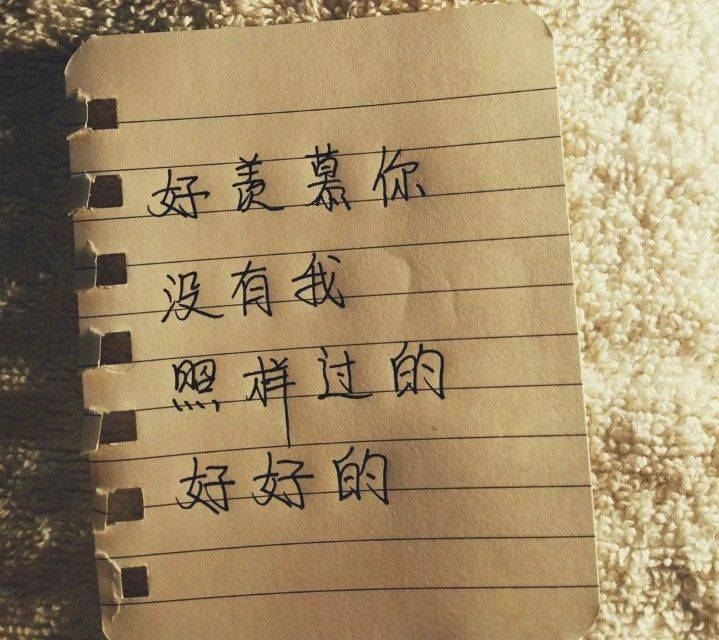 好羡慕你
没有我
照样过的
好好的